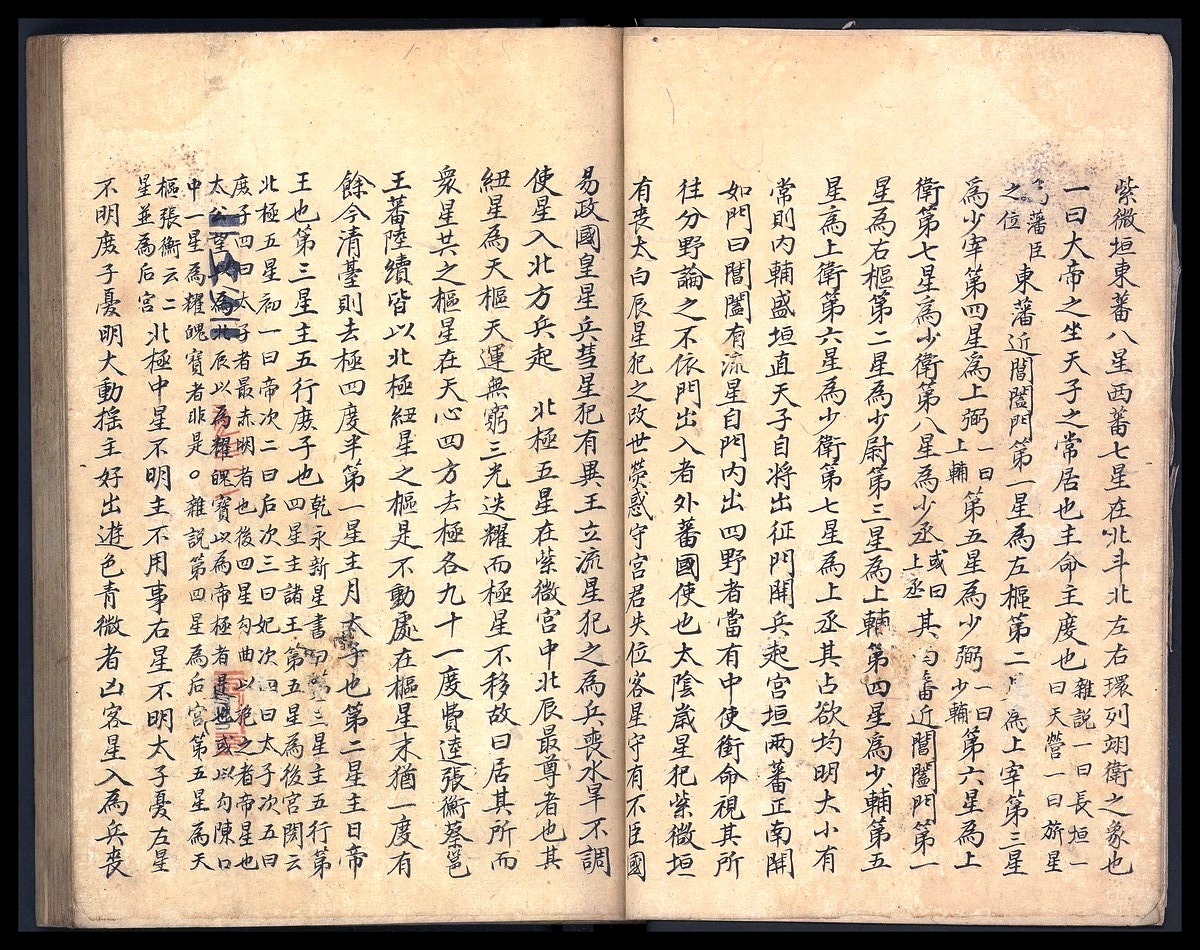 紫微垣東蕃八星西蕃七星在北斗北左右環列翊衛之象也
一曰大帝之坐天子之常居也主命主度也
雜説一曰長垣一
曰天營一曰旂星
為藩臣
之位
東藩近閶闔門第一星為左樞第二星為上宰第三星
為少宰第四星為上弼
一曰
上輔
第五星為少弼
一曰
少輔
第六星為上
衛第七星為少衛第八星為少丞
或曰
上丞
其西蕃近閶闔門第一
星為右樞第二星為少尉第三星為上輔第四星為少輔第五
星為上衛第六星為少衛第七星為上丞其占欲均明大小有
常則内輔盛垣直天子自將出征門開兵起宫垣兩蕃正南開
如門曰閶闔有流星自門内出四野者當有中使銜命視其所
往分野論之不依門出入者外蕃國使也太陰歲星犯紫微垣
有喪太白辰星犯之改世熒惑守宫君失位客星守有不臣國
易政國皇星兵彗星犯有異王立流星犯之為兵喪水旱不調
使星入北方兵起 北極五星在紫微宫中北辰最尊者也其
紐星為天樞天運無窮三光迭耀而極星不移故曰居其所而
衆星共之樞星在天心四方去極各九十一度費逵張衡蔡邕
王蕃陸續皆以北極紐星之樞是不動處在樞星末猶一度有
餘今清臺則去極四度半第一星主月太子也第二星主日帝
王也第三星主五行庶子也
乾永新星書曰第三星主五行第
四星主諸王第五星為後宫閎云
北極五星初一曰帝次二曰后次三曰妃次四曰太子次五曰
庶子四曰太子者最赤明者也後四星勾曲以抱之者帝星也
太公望以為北辰以為耀魄寶以為帝極者是也或以勾陳口
中一星為耀魄寶者非是○雜説第四星為后宫第五星為天
樞張衡云二
星並為后宫
北極中星不明主不用事右星不明太子憂左星
不明庶子憂明大動摇主好出遊色青微者凶客星入為兵喪